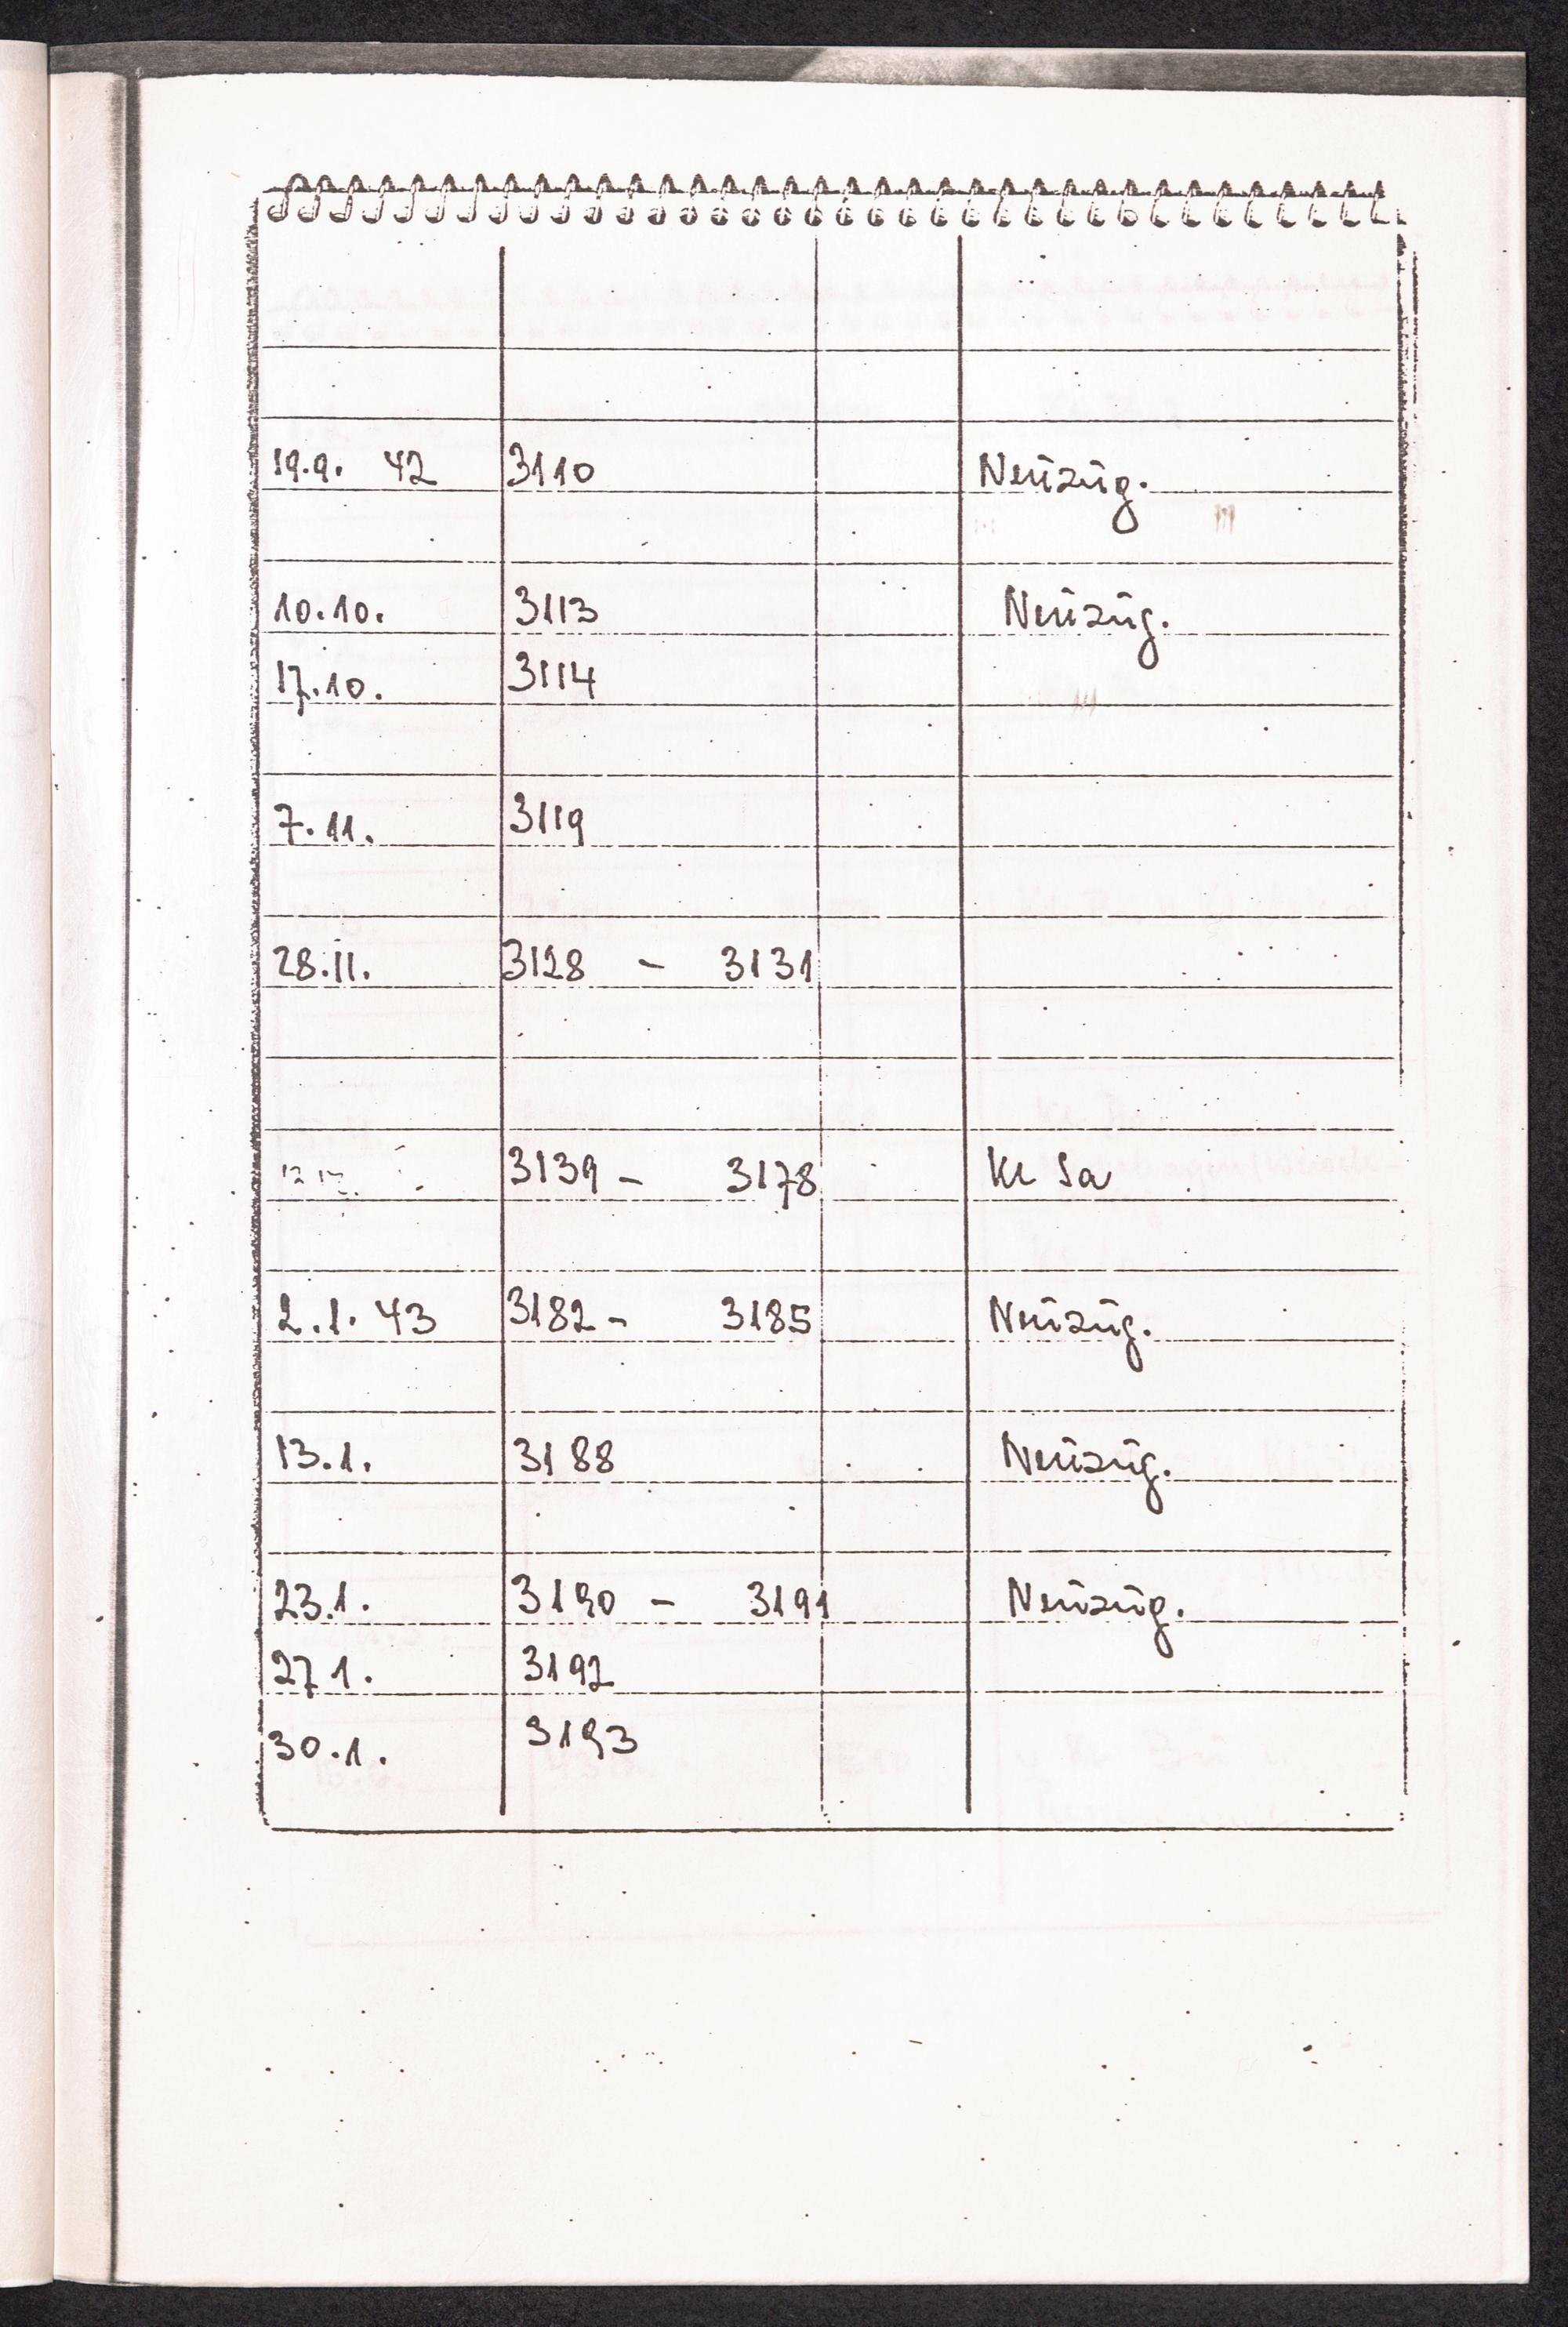 19.9. 42 3110 Neuzug.
10.10. 3113 Neuzug.
17.10. 3114
7.11. 3119
28.11. 3128 - 3131
3139 - 3178 KL Sa
2.1. 43 3182 - 3185 Neuzug.
13.1. 3188 Neuzug.
23.1. 3190 - 3191 Neuzug.
27.1. 3192
30.1. 3193